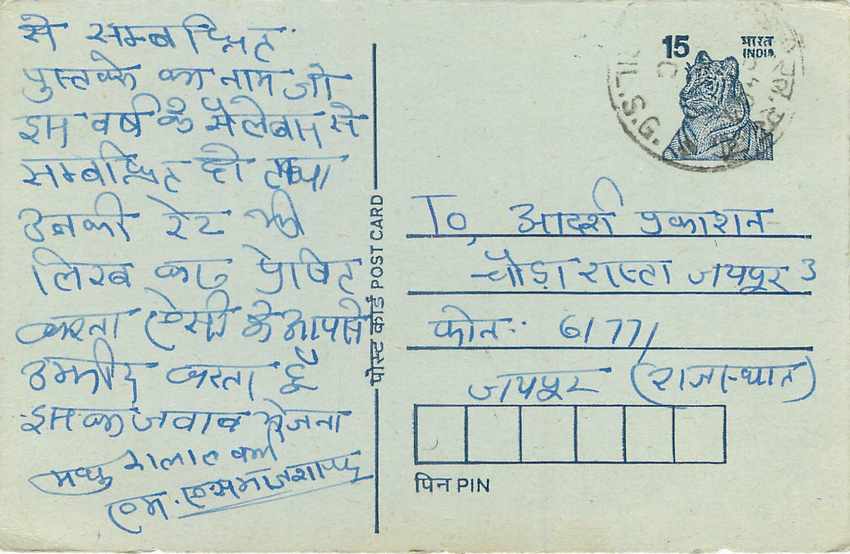 से सम्बन्धित
पुस्तके का नाम जो
इस वर्ष के सेलेबस से
सम्बन्धित हो तथा
उनकी रेट भी
लिख कर प्रेषित
करना ऐसी मे आपसे
उम्मीद करता हूँ
इस का जवाब भेजना
मधु
एम. ए
पोस्ट कार्ड POST CARD
15 भारत
INDIA
IL.S.G.
To, आदर्श प्रकाशन
चौड़ा रास्ता जयपुर 3
फोन: 61771
जयपुर (राजस्थान)
पिन PIN